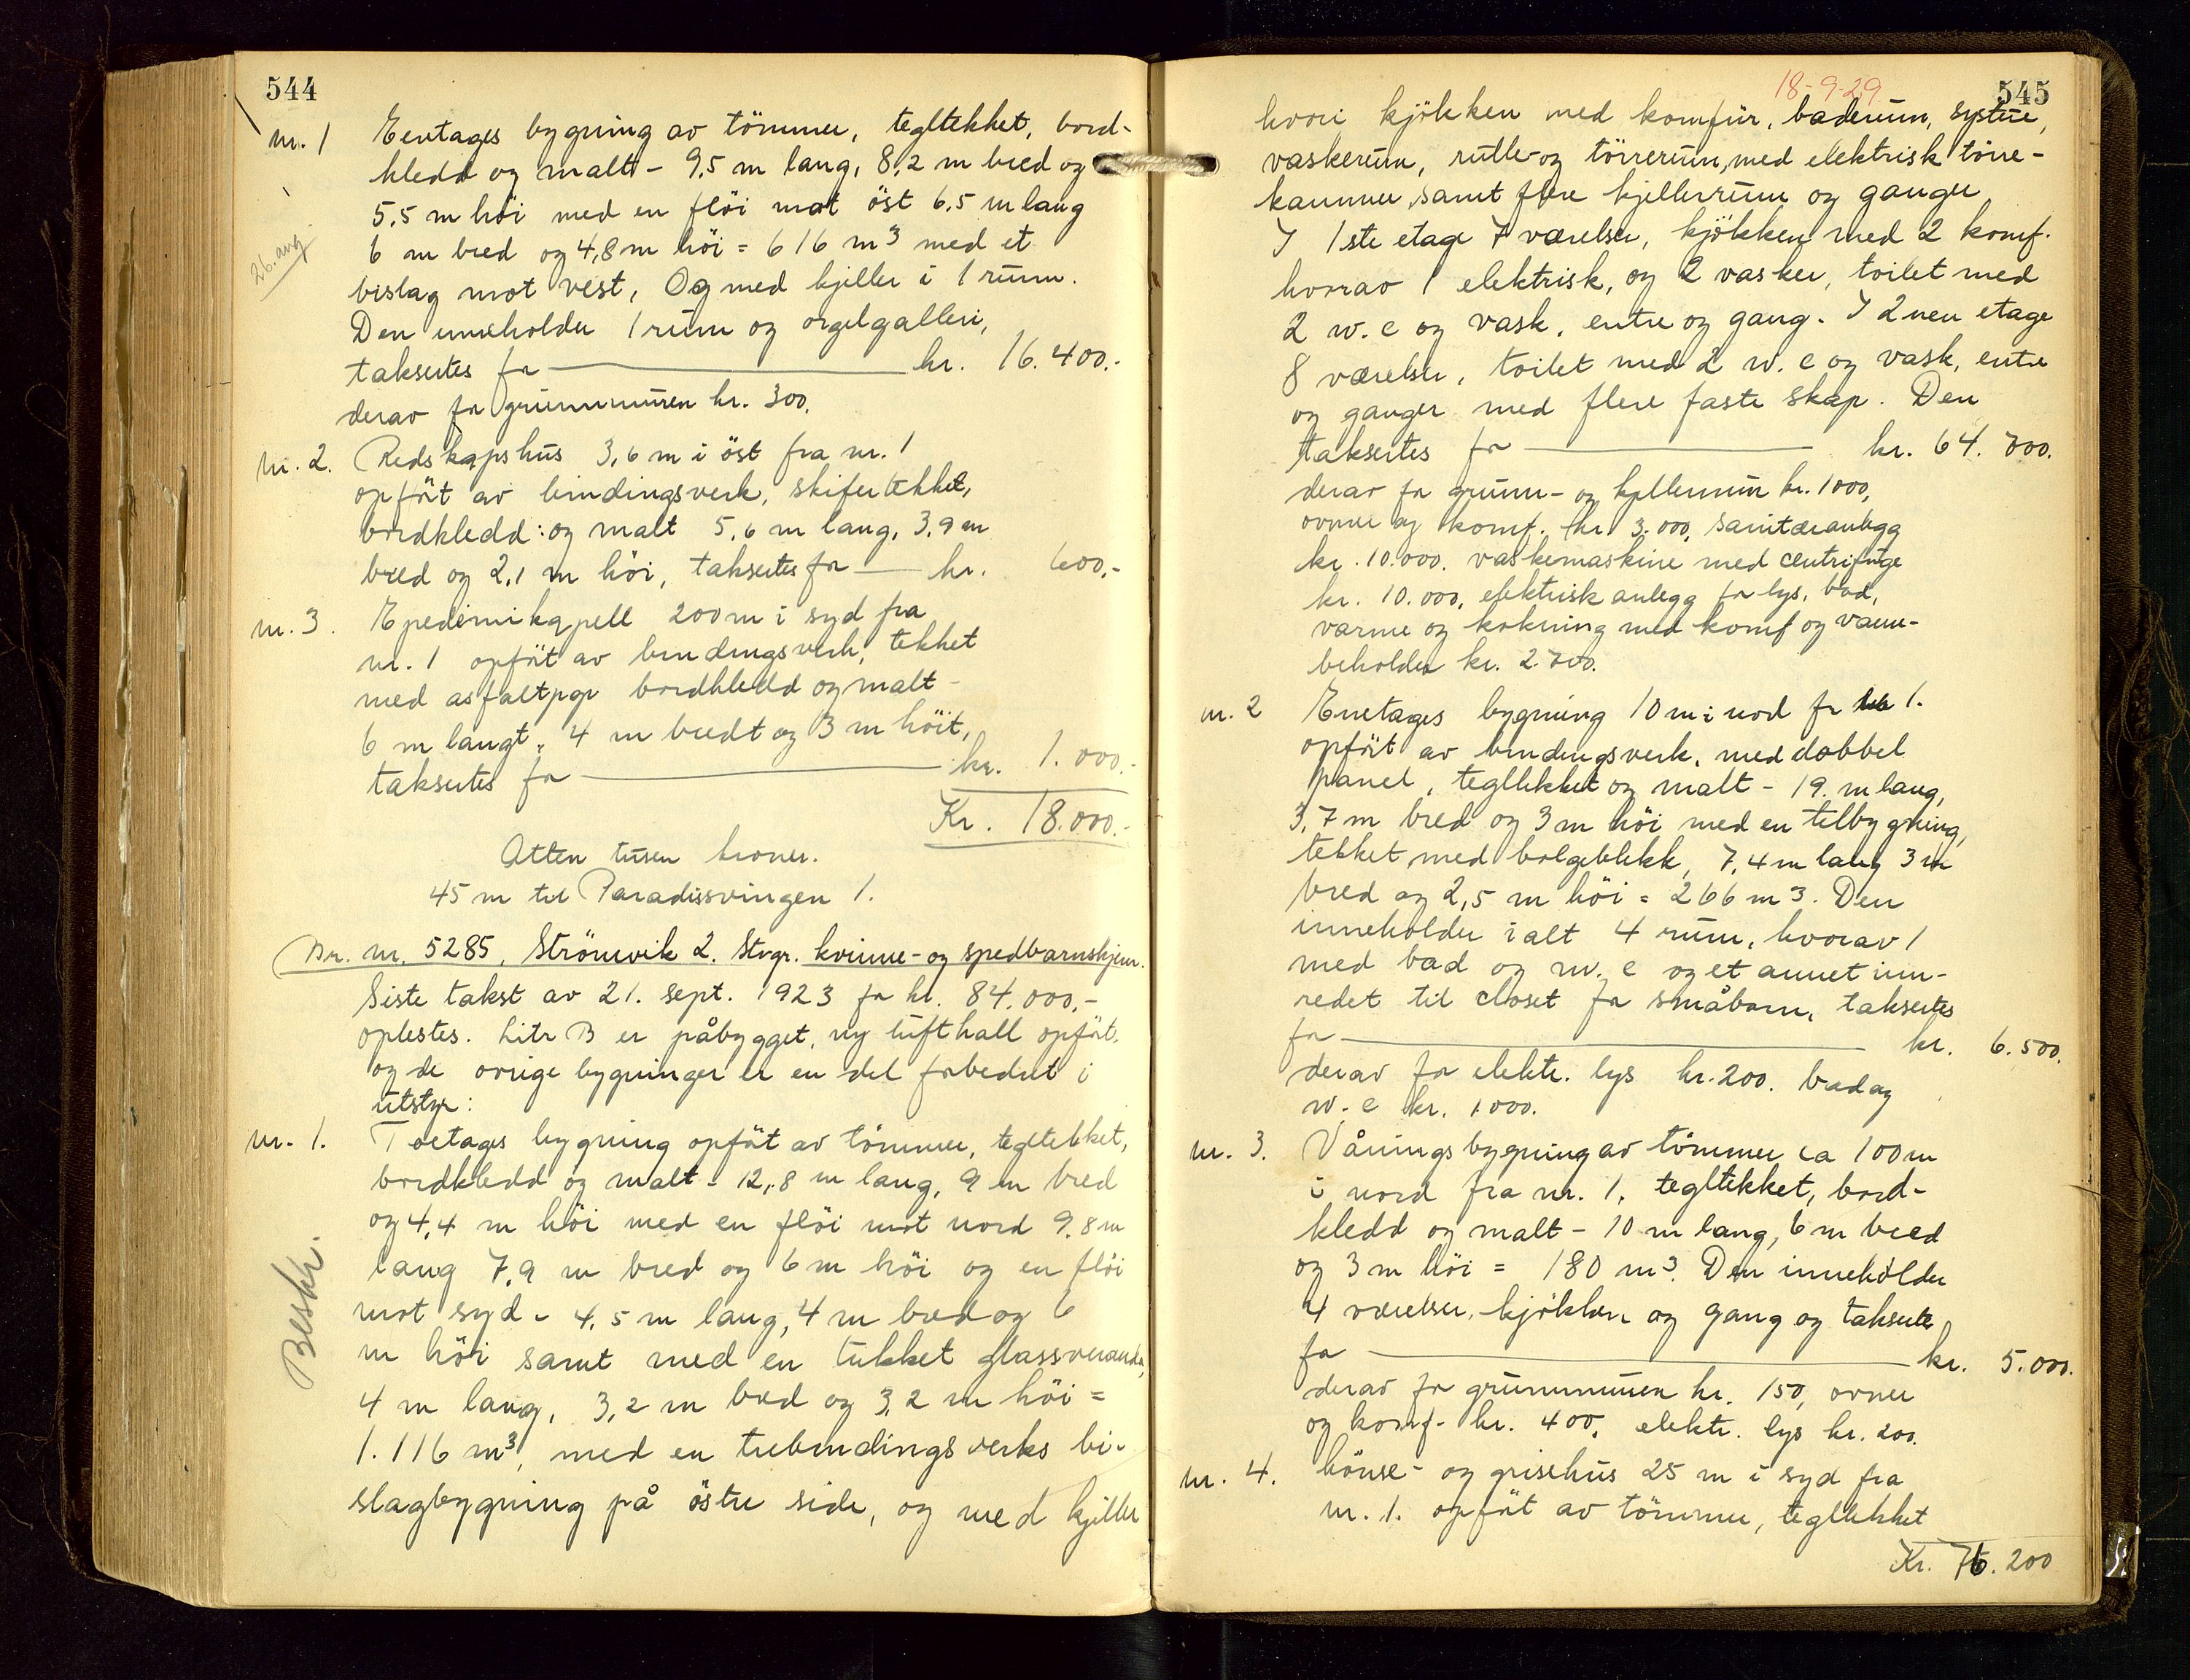 544
nr. 1 Enetages bygning av tömmer, tegltekket, bord-
kledd og malt - 9,5 m lang, 8,2 m bred og
5,5 m höi med en flöi mot öst 6,5 m lang
26. aug
6 m bred og 4,8 m höi = 616 m³ med et
bislag mot vest, Og med kjeller i 1 rum.
Den inneholder 1 rum og orgelgalleri,
taksertes for kr. 16.400.-
derav for grunnmuren kr. 300,
nr. 2. Redskapshus 3,6 m i öst fra nr. 1
opfört av bindingsverk, skifertekket,
bordkledd: og malt 5,6 m lang, 3,9 m
bred og 2,1 m höi, taksertes for kr. 600.-
nr. 3. Epedimikapell 200 m i syd fra
nr. 1 opfört av bindingsverk, tekket
med asfaltpap bordkledd og malt -
6 m langt, 4 m bredt og 3 m höit,
taksertes for kr. 1.000.-
Kr. 18.000.-
Atten tusen kroner.
45 m til Paradissvingen 1.
Br. nr. 5285, Strömvik 2. Stvgr. kvinne- og spedbarnshjem.
Siste takst av 21. sept. 1923 for kr. 84.000,-
oplestes. Litr B er påbygget, ny lufthall opfört,
og de övrige bygninger er en del forbedret i
utstyr:
nr. 1. Toetages bygning opfört av tömmer, tegltekket,
bordkledd og malt - 12,8 m lang, 9 m bred
og 4,4 m höi med en flöi mot nord 9,8 m
lang 7,9 m bred og 6 m höi og en flöi
Beskr.
mot syd - 4,5 m lang, 4 m bred og 6
m höi samt med en tekket glassveranda,
4 m lang, 3,2 m bred og 3,2 m höi =
1.116 m³, med en trebindingsverks bi-
slagbygning på östre side, og med kjeller
18-9-29
545
hvori kjökken med komfür, baderum, systue,
vaskerum, rulle- og törrerum, med elektrisk törre-
kammer, samt flere kjellerrum og ganger
I 1ste etage 7 værelser, kjökken med 2 komf.
hvorav 1 elektrisk, og 2 vasker, toilet med
2 w.c og vask, entre og gang. I 2nen etage
8 værelser, toilet med 2 w.c og vask, entre
og ganger med flere faste skap. Den
taksertes for kr. 64.700.
derav for grunn- og kjellermur kr. 1000,
ovner og komf. kr. 3.000, sanitæranlegg
kr. 10.000. vaskemaskine med centrifuge
kr. 10.000, elektrisk anlegg for lys, bad,
varme og kokning med komf og varm-
beholder kr. 2.700.
nr. 2 Enetages bygning 10 m i nord fr 1.
opfört av bindingsverk, med dobbel
panel, tegltekket og malt - 19. m lang,
3,7 m bred og 3 m höi med en tilbygning,
tekket med bølgeblikk, 7,4 m lang 3 m
bred og 2,5 m höi = 266 m³. Den
inneholder ialt 4 rum, hvorav 1
med bad og w.c og et annet inn-
redet til closet for småbarn, taksertes
for kr. 6.500.
derav for elektr. lys kr. 200. bad og
w.c kr. 1000.
nr. 3. Våningsbygning av tömmer ca 100 m
i nord fra nr. 1, tegltekket, bord-
kledd og malt - 10 m lang, 6 m bred
og 3 m höi = 180 m³. Den inneholder
4 værelser, kjökken og gang og taksertes
for kr. 5.000.
derav for grunnmuren kr. 150, ovner
og komf. kr. 400, elektr. lys kr. 200.
nr. 4. Hönse- og grisehus 25 m i syd fra
nr. 1. opfört av tömmer, tegltekket
Kr. 76.200